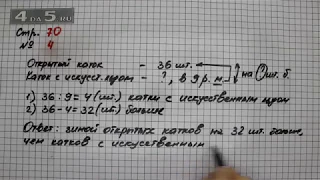 4DA5.RU
Стр. 70
№ 4
Открытый каток — 36 шт.
Каток с искусст. льдом — ?, в 9 р. м на ? шт. б.
1) 36 : 9 = 4 (шт.) катки с искусственным льдом
2) 36 - 4 = 32 (шт.) больше
Ответ: зимой открытых катков на 32 шт. больше,
чем катков с искусственным